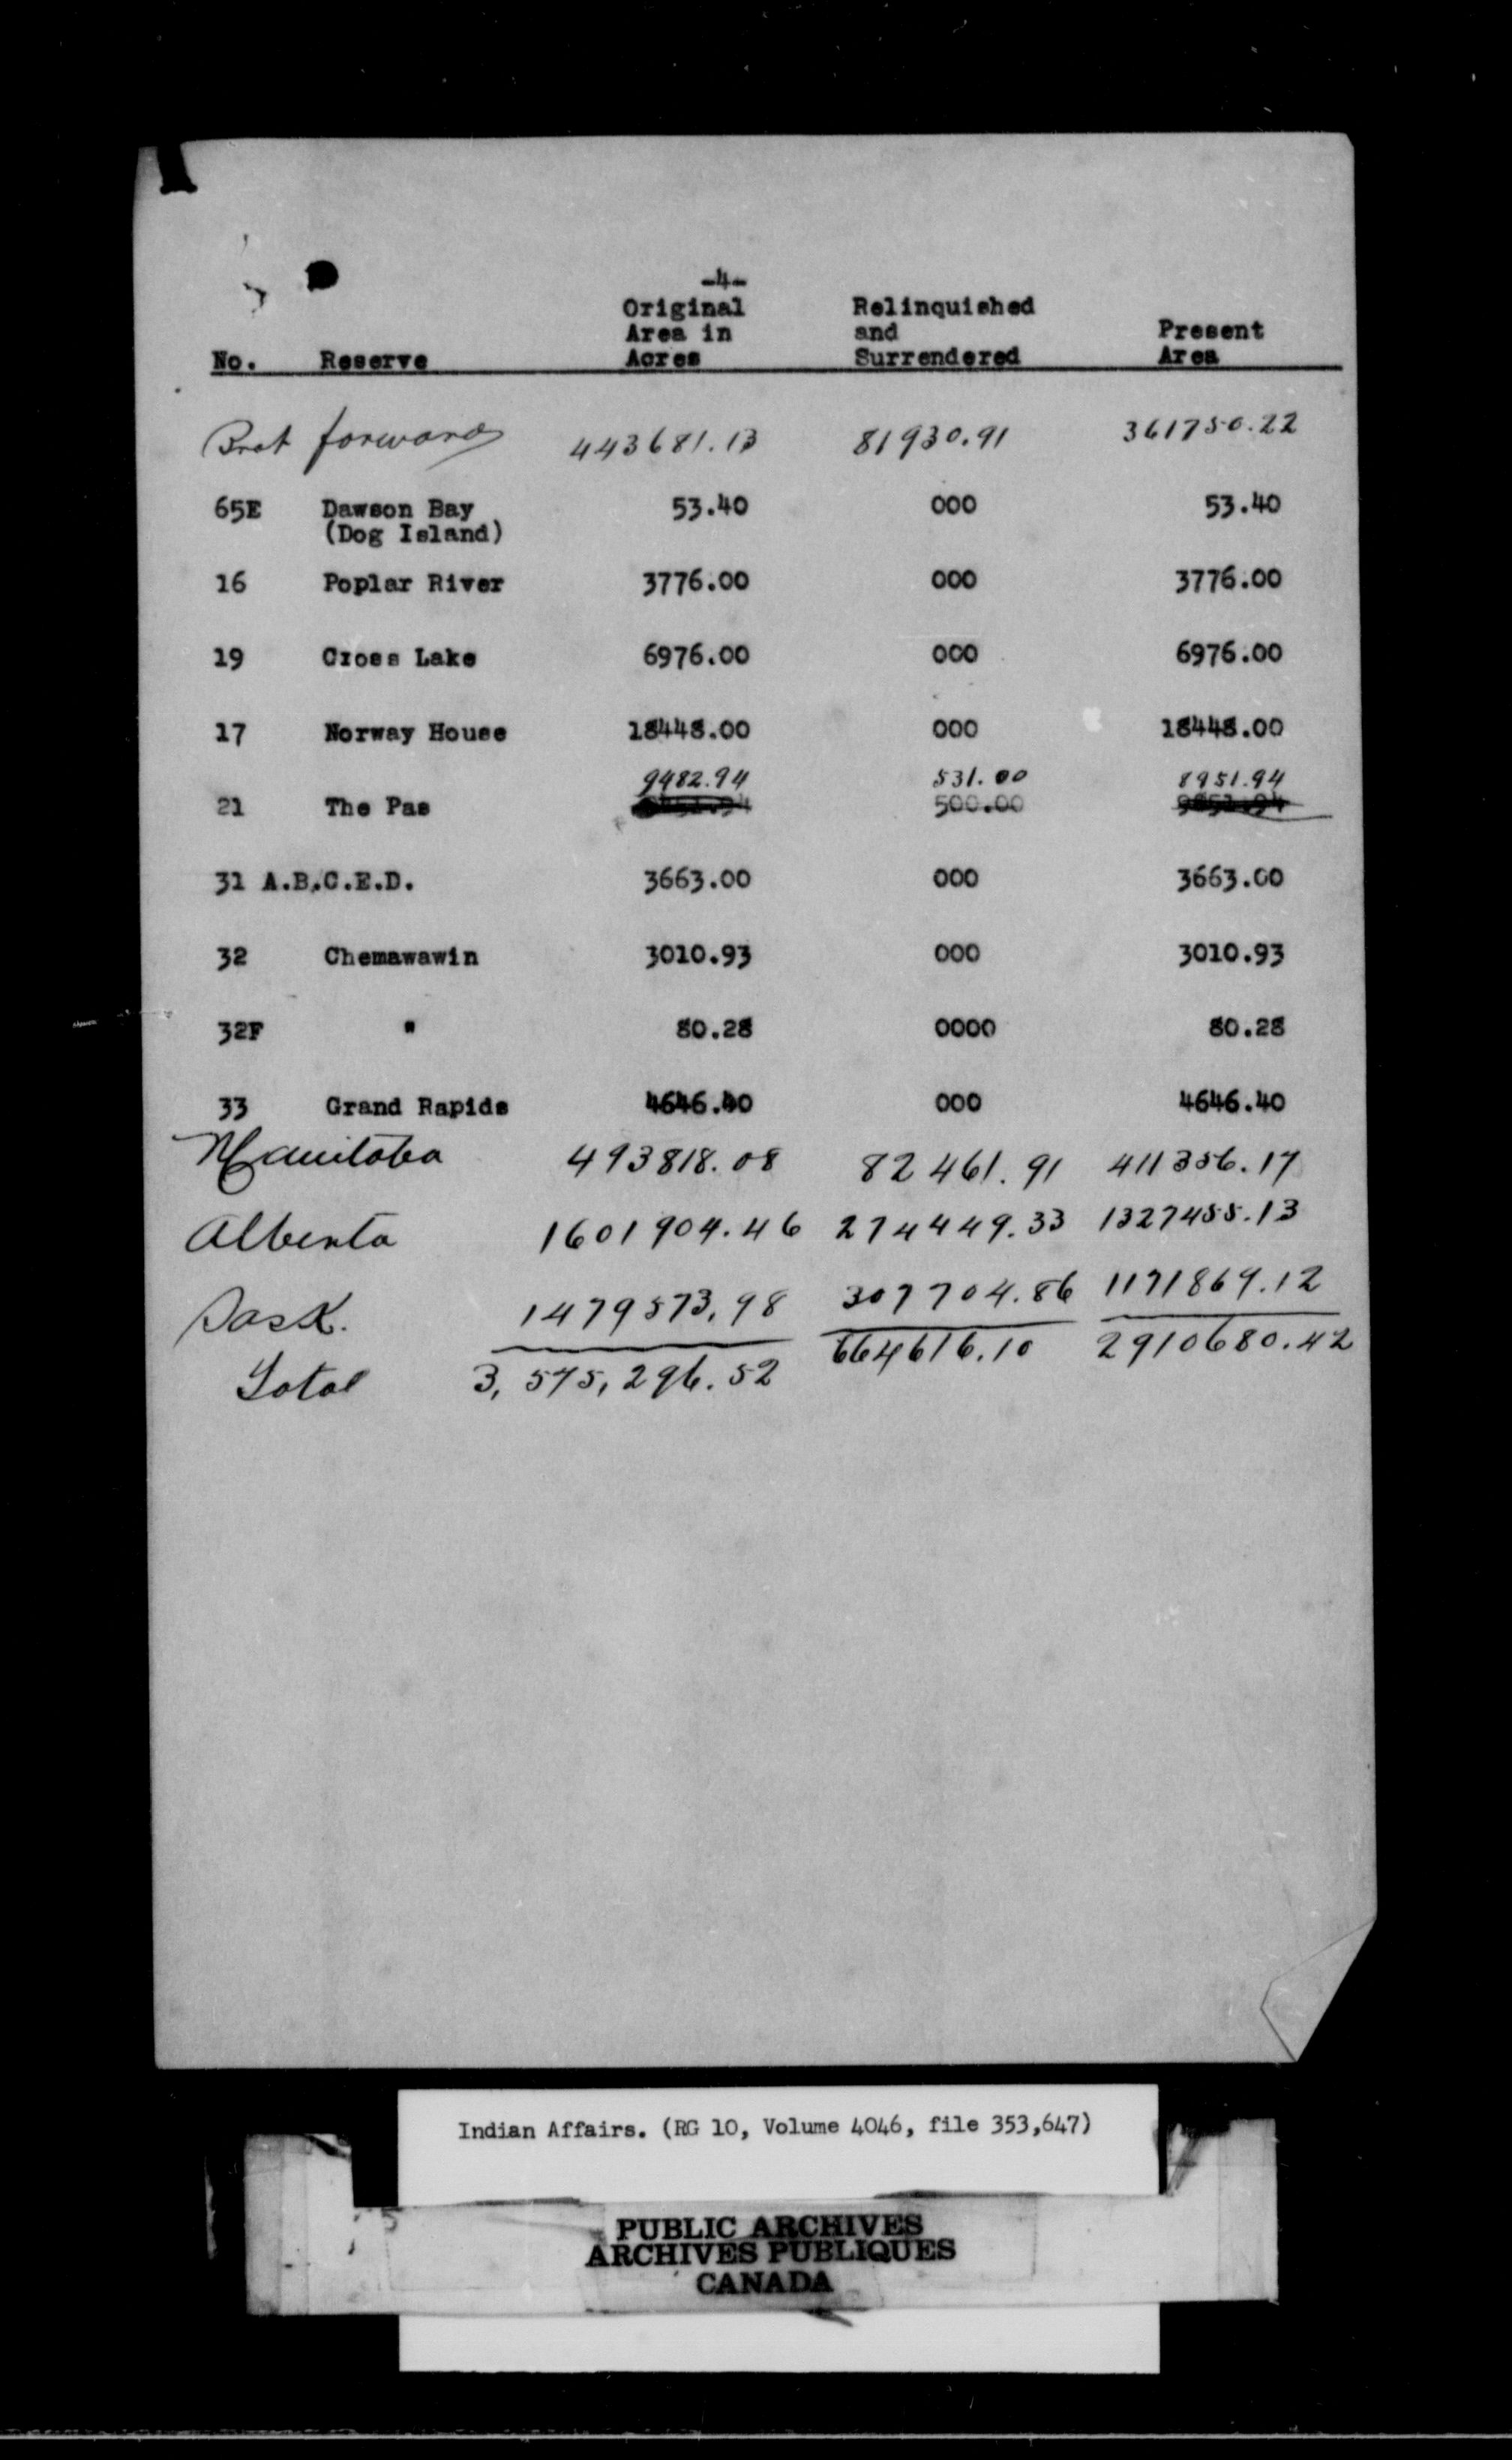 -4-
Original Area in Acres
Relinquished and Surrendered
Present Area
No. Reserve
Brot forward 443681.13 81930.91 361750.22
65E Dawson Bay 53.40 000 53.40
(Dog Island)
16 Poplar River 3776.00 000 3776.00
19 Cross Lake 6976.00 000 6976.00
17 Norway House 18448.00 000 18448.00
9482.94 531.00 8951.94
21 The Pas 500.00
31 A.B.C.E.D. 3663.00 000 3663.00
32 Chemawawin 3010.93 000 3010.93
32F " 80.28 0000 80.28
33 Grand Rapids 4646.40 000 4646.40
Manitoba 493818.08 82461.91 411356.17
Alberta 1601904.46 274449.33 1327455.13
Sask. 1479573.98 307704.86 1171869.12
Total 3,575,296.52 664616.10 2910680.42
Indian Affairs. (RG 10, Volume 4046, file 353,647)
PUBLIC ARCHIVES
ARCHIVES PUBLIQUES
CANADA